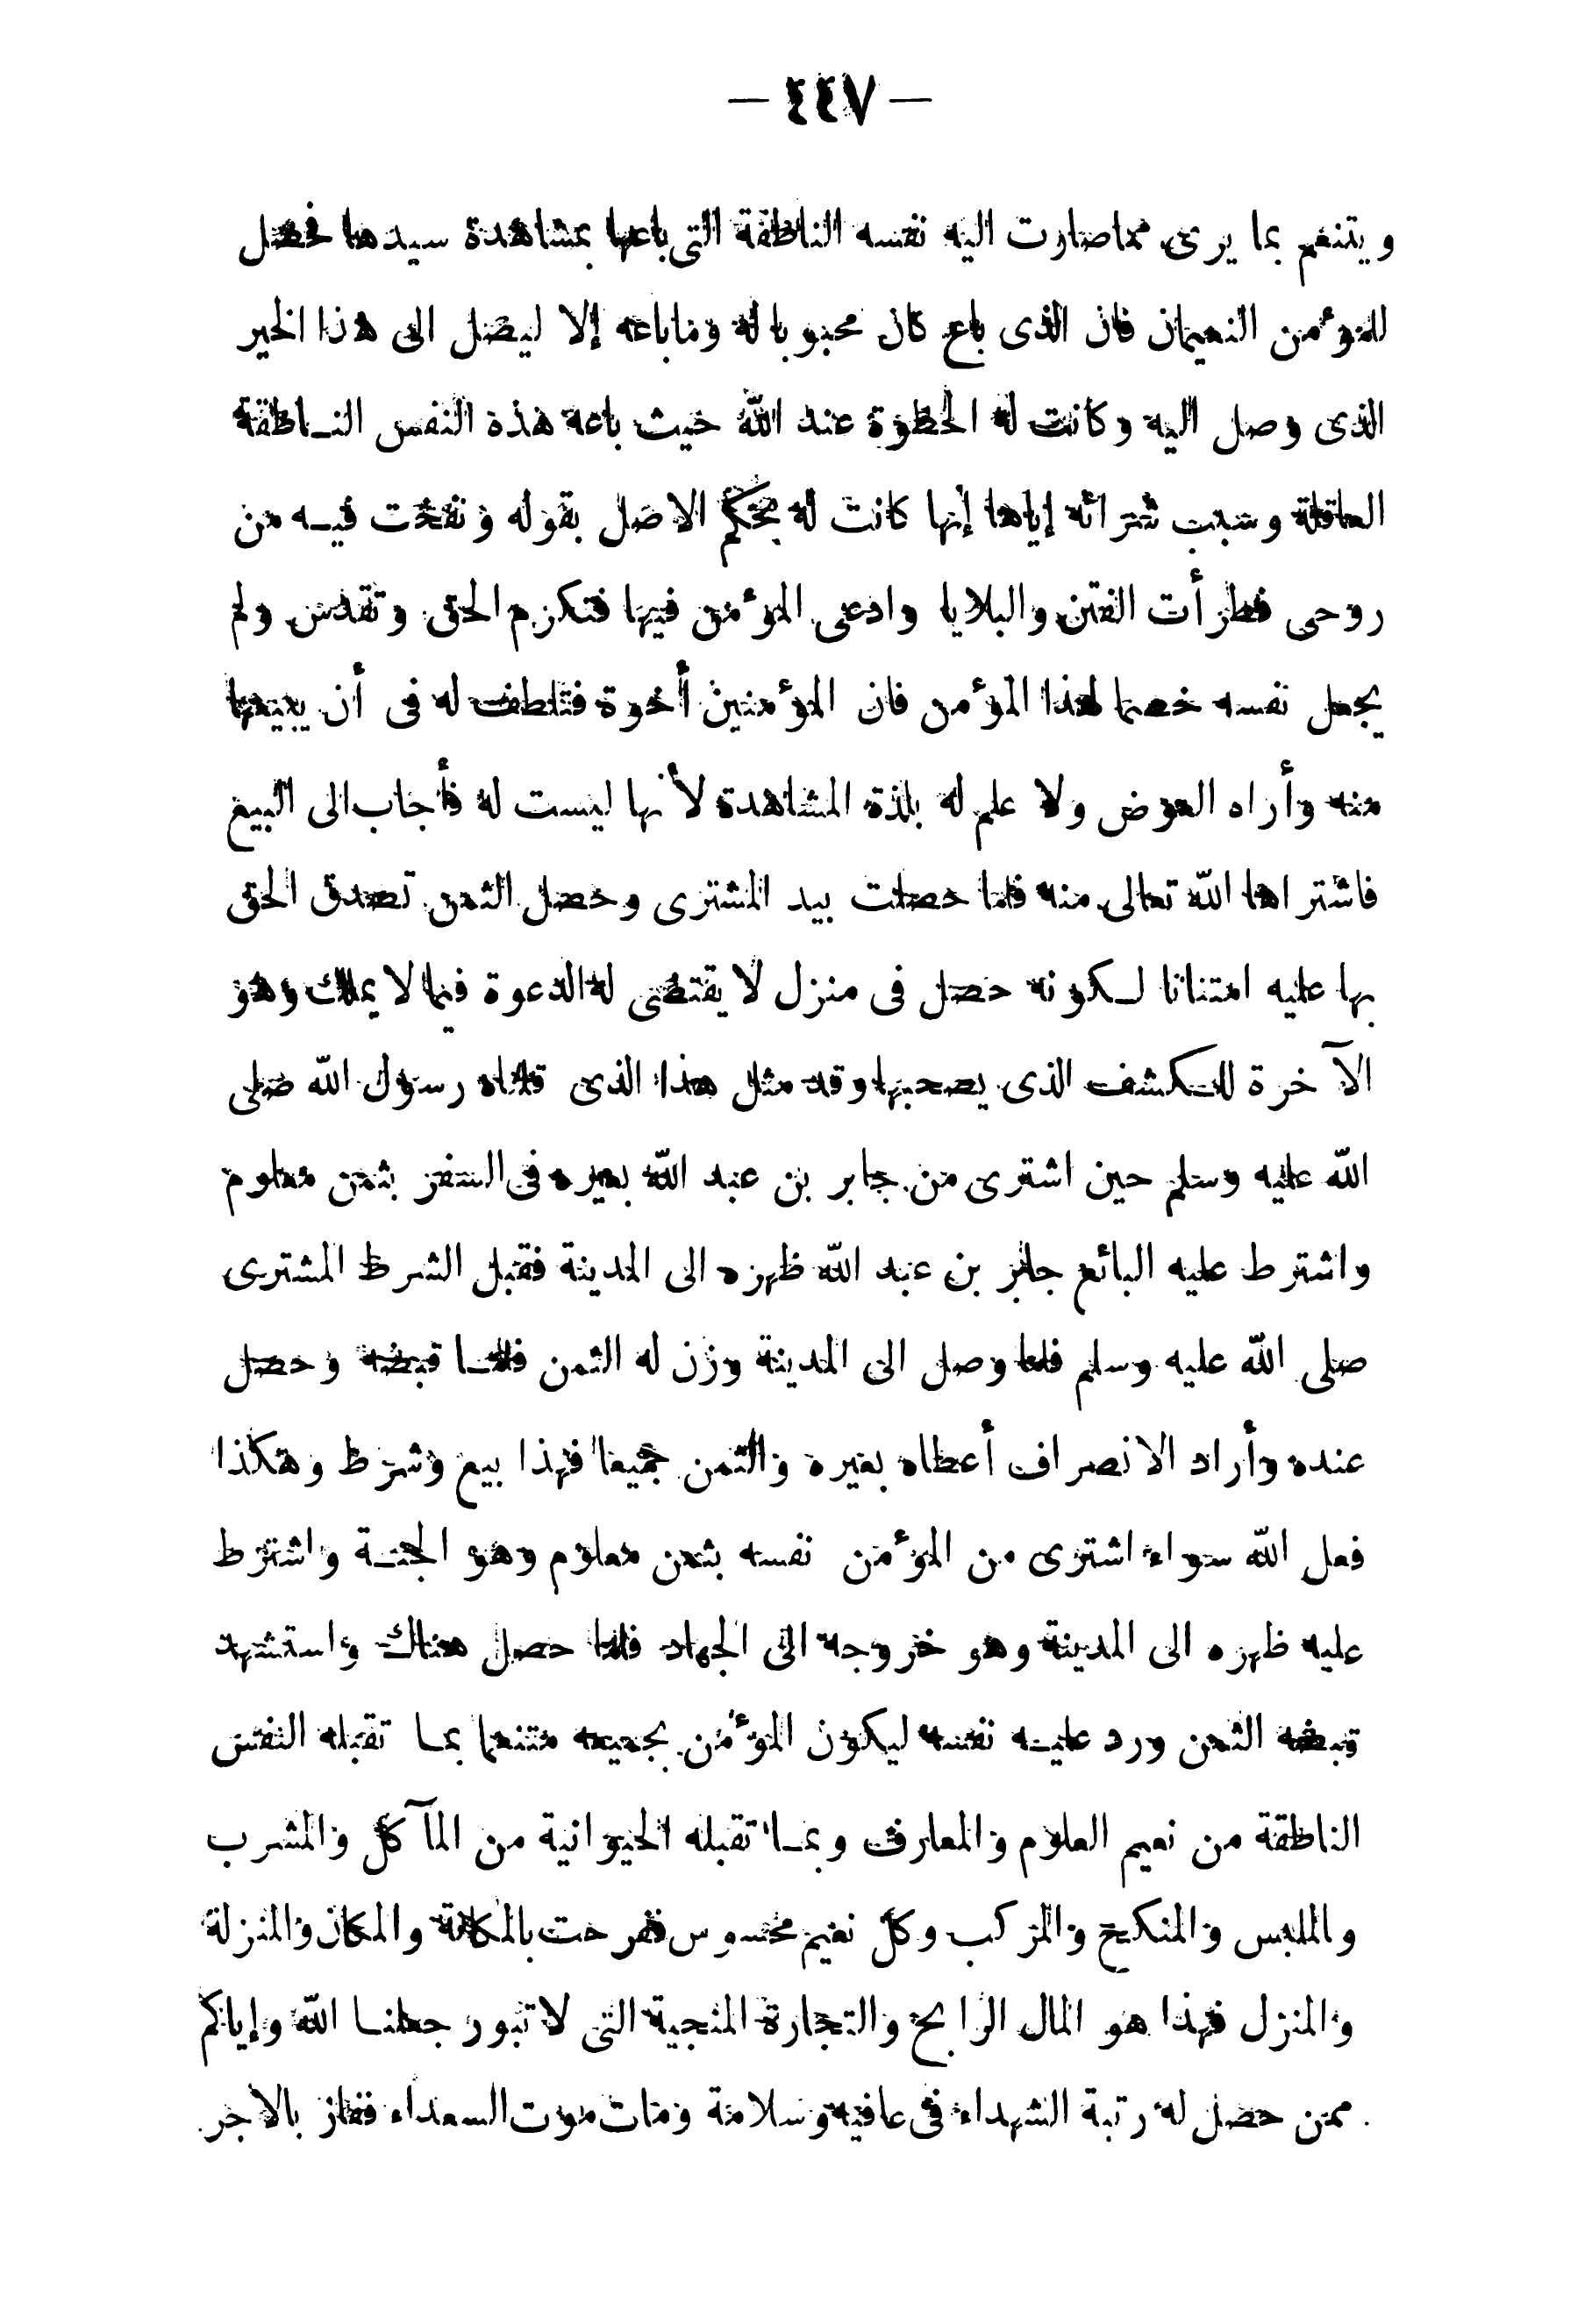 — ٤٤٧ —
ويتنعم بما يرى مما صارت اليه نفسه الناطقة التى باعها بمشاهدة سيدها فحصل
للمؤمن النعيمان فان الذى باع كان محبوبا له وما باعه إلا ليصل الى هذا الخير
الذى وصل اليه وكانت له الحظوة عند الله حيث باعه هذه النفس النـاطقة
العاقلة وسبب شرائه إياها إنها كانت له بحكم الاصل بقوله ونفخت فيـه من
روحى فطرأت الفتن والبلايا وادعى المؤمن فيها فتكرم الحق وتقدس ولم
يجعل نفسه خصما لهذا المؤمن فان المؤمنين أخوة فتلطف له فى أن يبيعها
منه وأراه العوض ولا علم له بلذة المشاهدة لأنها ليست له فأجاب الى البيع
فاشتراها الله تعالى منه فلما حصلت بيد المشترى وحصل الثمن تصدق الحق
بها عليه امتنانا لـكونه حصل فى منزل لا يقتضى له الدعوة فيما لا يملك وهو
الآخرة للـكشف الذى يصحبها وقد مثل هذا الذى قلناه رسول الله صلى
الله عليه وسلم حين اشترى من جابر بن عبد الله بعيره فى السفر بثمن معلوم
واشترط عليه البائع جابر بن عبد الله ظهره الى المدينة فقبل الشرط المشترى
صلى الله عليه وسلم فلما وصل الى المدينة وزن له الثمن فلمـا قبضه وحصل
عنده وأراد الانصراف أعطاه بعيره والثمن جميعا فهذا بيع وشرط وهكذا
فعل الله سواء اشترى من المؤمن نفسه بثمن معلوم وهو الجنـة واشترط
عليه ظهره الى المدينة وهو خروجه الى الجهاد فلما حصل هناك واستشهد
قبضه الثمن ورد عليـه نفسه ليكون المؤمن بجميعه متنعما بمـا تقبله النفس
الناطقة من نعيم العلوم والمعارف وبمـا تقبله الحيوانية من المآكل والمشرب
والملبس والمنكح والمركب وكل نعيم محسوس ففرحت بالمكانة والمكان والمنزلة
والمنزل فهذا هو المال الرابح والتجارة المنجية التى لا تبور جعلنـا الله وإياكم
ممن حصل له رتبة الشهداء فى عافية وسلامة ومات موت السعداء ففاز بالاجر